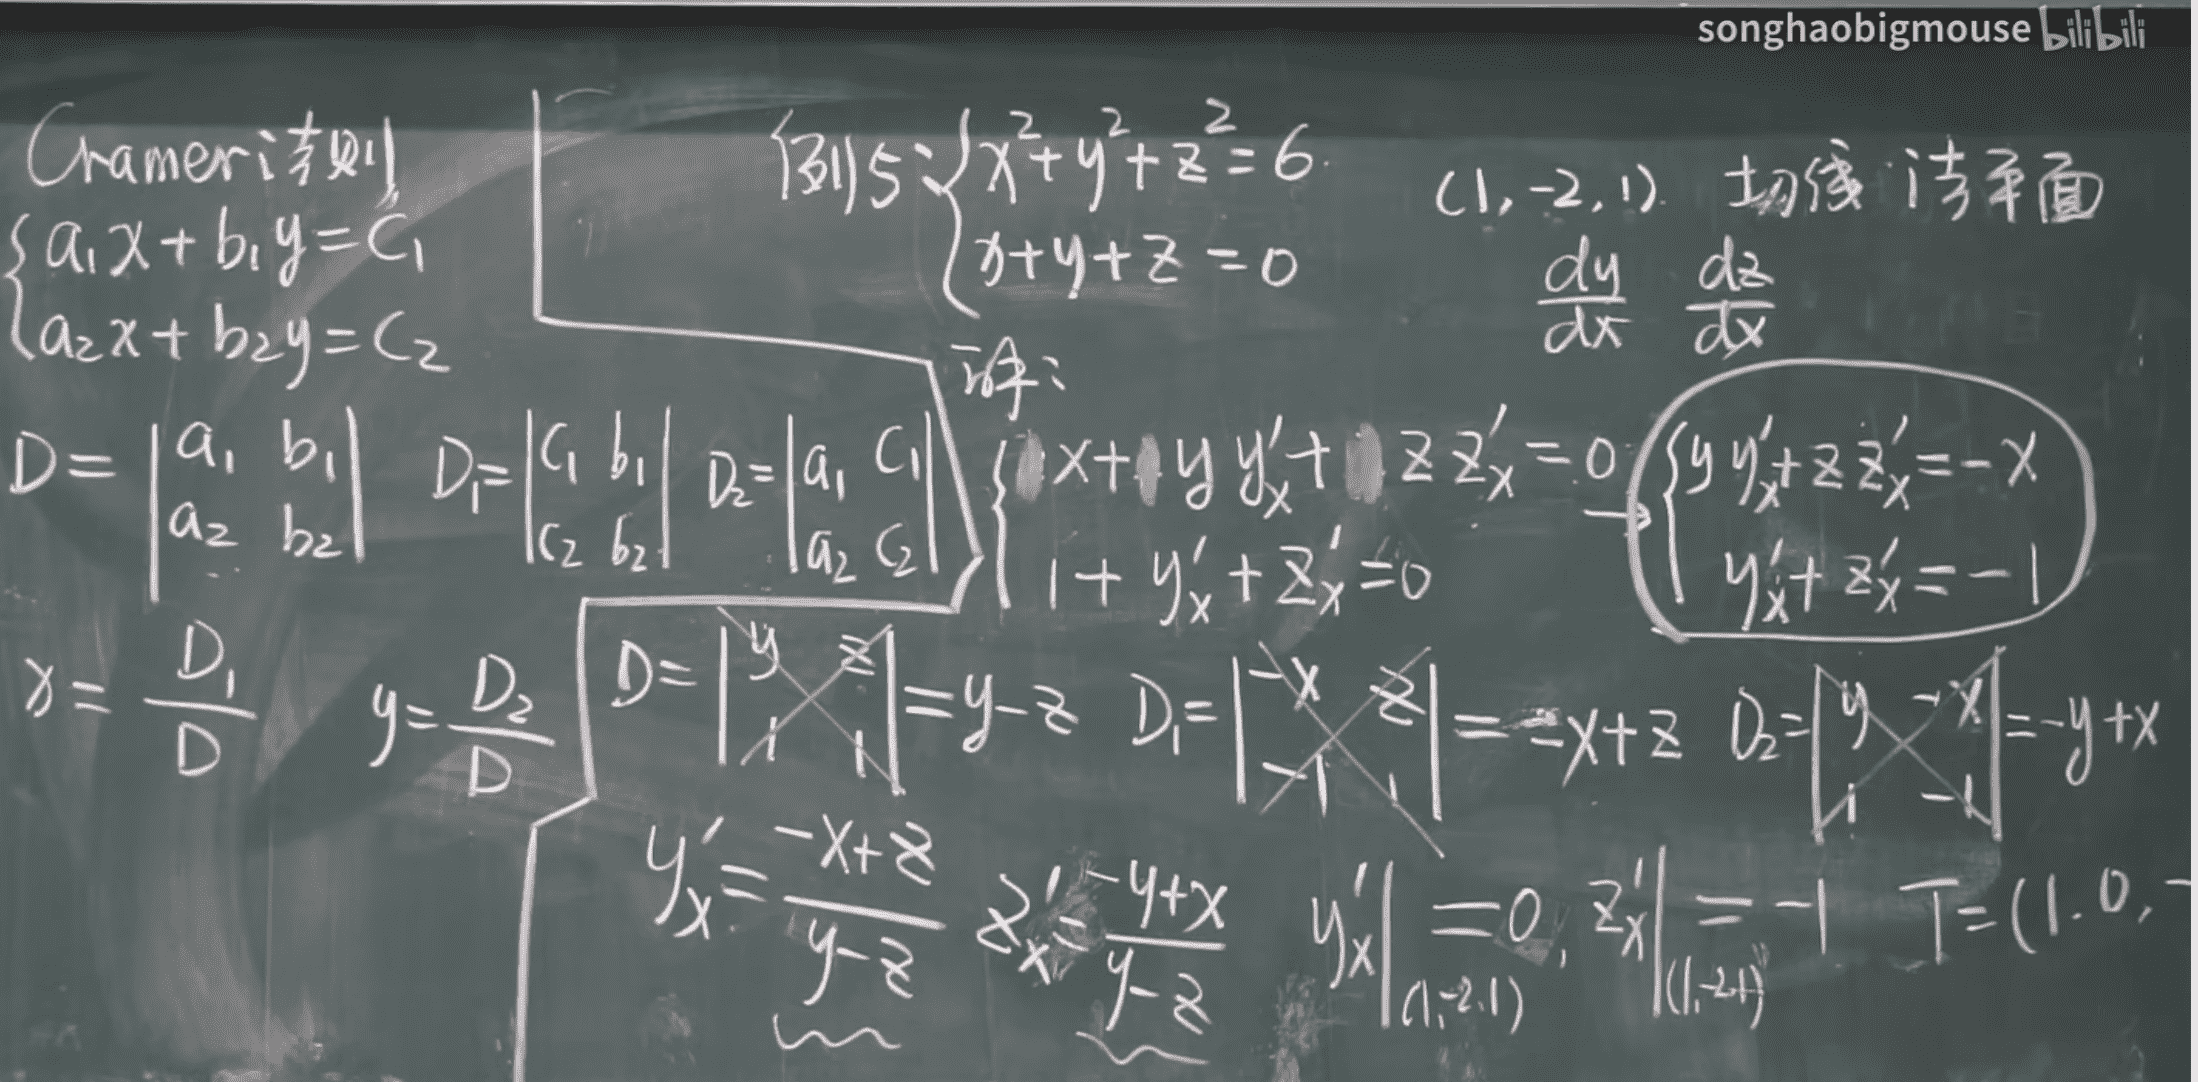 songhaobigmouse bilibili
Cramer法则
{a₁x + b₁y = c₁
{a₂x + b₂y = c₂
D = |a₁ b₁| D₁ = |c₁ b₁| D₂ = |a₁ c₁|
|a₂ b₂| |c₂ b₂| |a₂ c₂|
x = D₁/D y = D₂/D
例5: {x² + y² + z² = 6. (1, -2, 1). 切线 法平面
{x + y + z = 0 dy/dx dz/dx
解:
{x + y y'ₓ + z z'ₓ = 0 → {y y'ₓ + z z'ₓ = -x
{1 + y'ₓ + z'ₓ = 0 {y'ₓ + z'ₓ = -1
D = |y z| = y-z D₁ = |-x z| = -x+z D₂ = |y -x| = -y+x
|1 1| |-1 1| |1 -1|
y'ₓ = (-x+z)/(y-z) z'ₓ = (-y+x)/(y-z) y'ₓ|(1,-2,1) = 0, z'ₓ|(1,-2,1) = -1 T = (1. 0, -